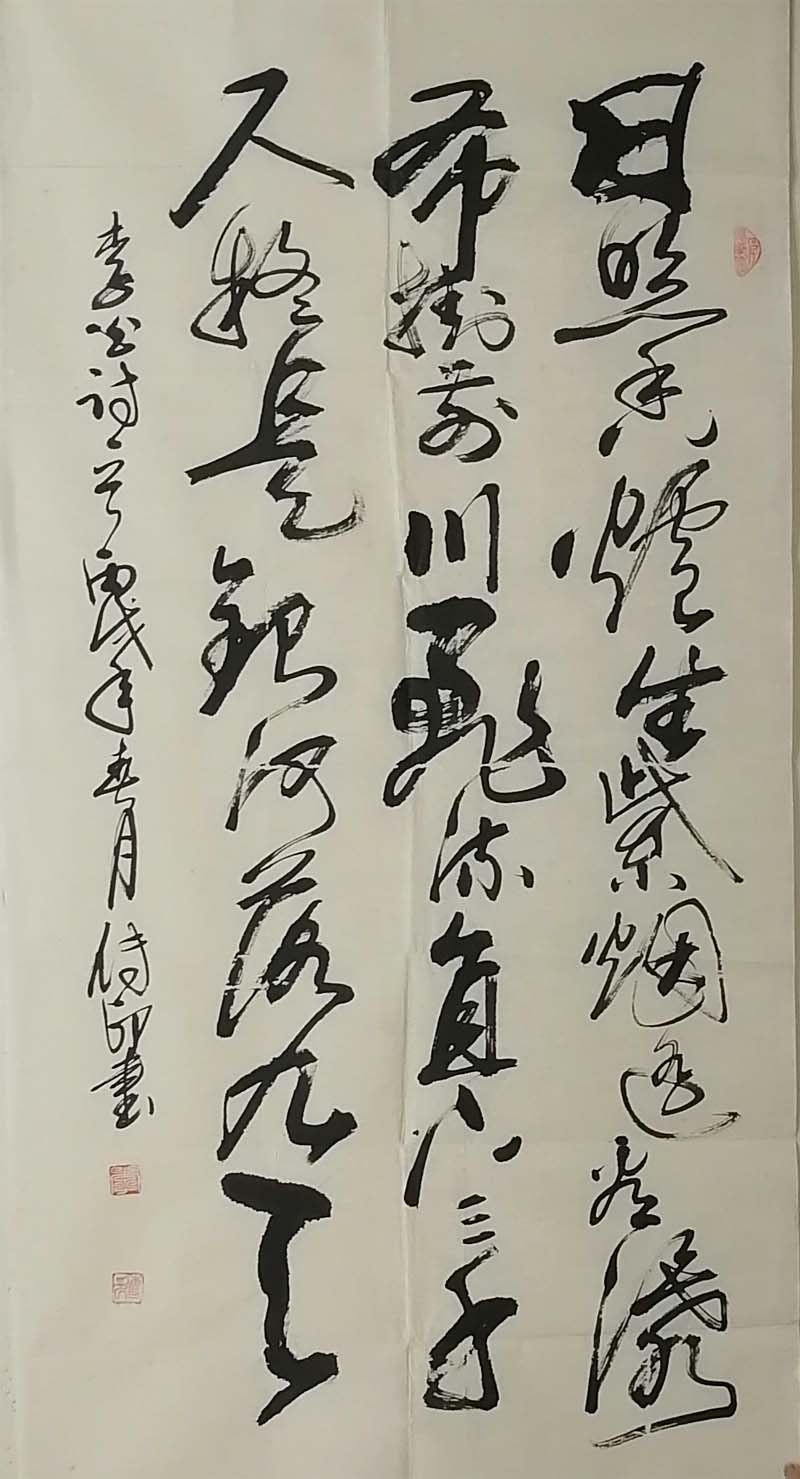 日照香爐生紫烟遥看瀑
布掛前川飛流直下三千
尺疑是銀河落九天
李白詩一首丙戌年春月印書